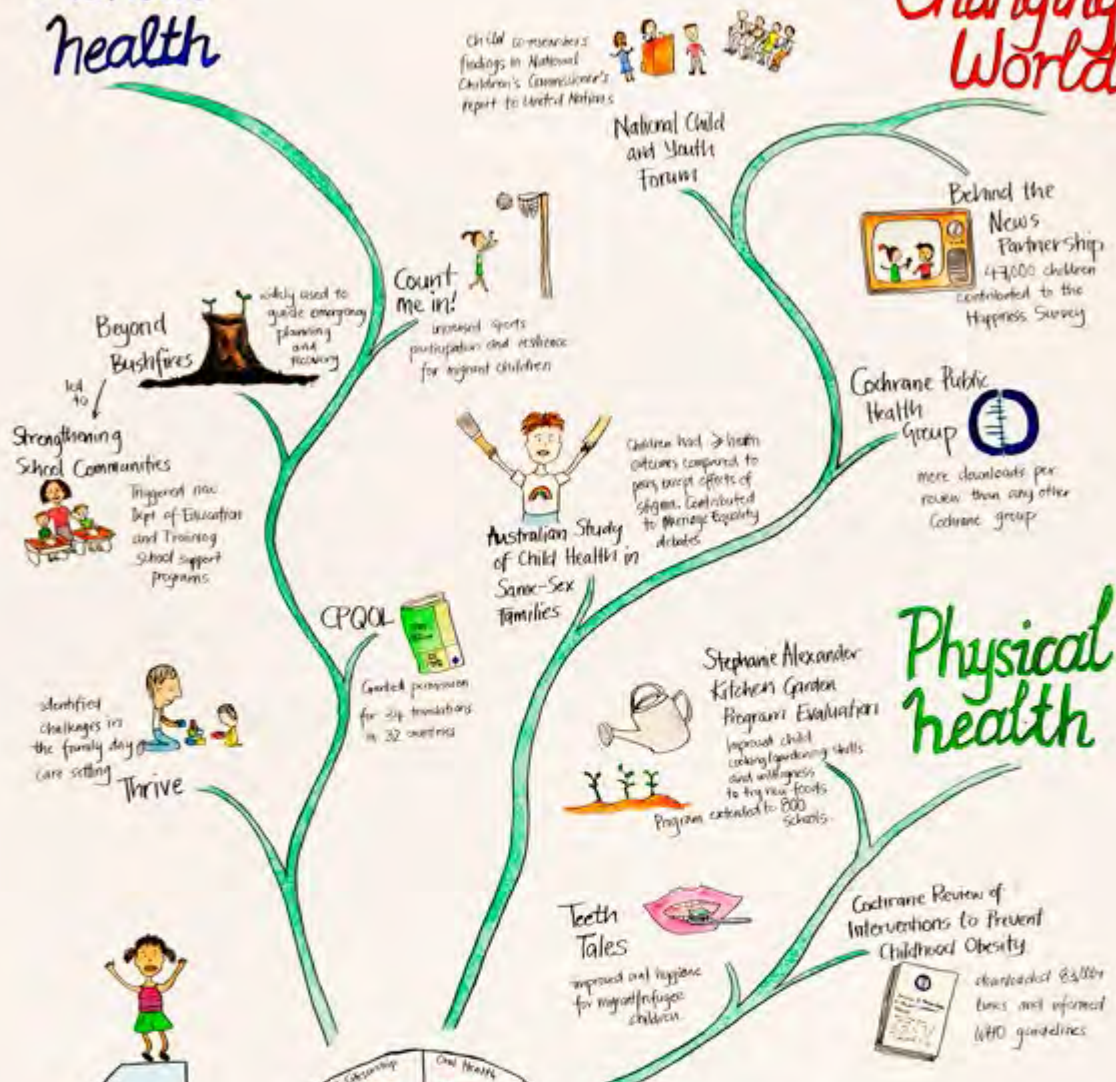 health
Changing
World
Child co-researchers
findings in National
Children's Commissioner's
report to United Nations
National Child
and Youth
Forum
Behind the
News
Partnership
47,000 children
contributed to the
Happiness Survey
Count
me in!
increased sports
participation and resilience
for migrant children
Beyond
Bushfires
widely used to
guide emergency
planning
and
recovery
led
to
Strengthening
School Communities
Triggered new
Dept of Education
and Training
School support
programs
Cochrane Public
Health
Group
more downloads per
review than any other
Cochrane group
Children had > health
outcomes compared to
peers, except effects of
stigma. Contributed
to Marriage Equality
debates
Australian Study
of Child Health in
Same-Sex
Families
CPQOL
Granted permission
for 24 translations
in 32 countries
Physical
health
Stephanie Alexander
Kitchen Garden
Program Evaluation
Improved child
cooking/gardening skills
and willingness
to try new foods
Program extended to 800
schools.
identified
challenges in
the family day
care setting
Thrive
Teeth
Tales
improved oral hygiene
for migrant/refugee
children
Cochrane Review of
Interventions to Prevent
Childhood Obesity
downloaded
times and informed
WHO guidelines
Citizenship
Oral Health